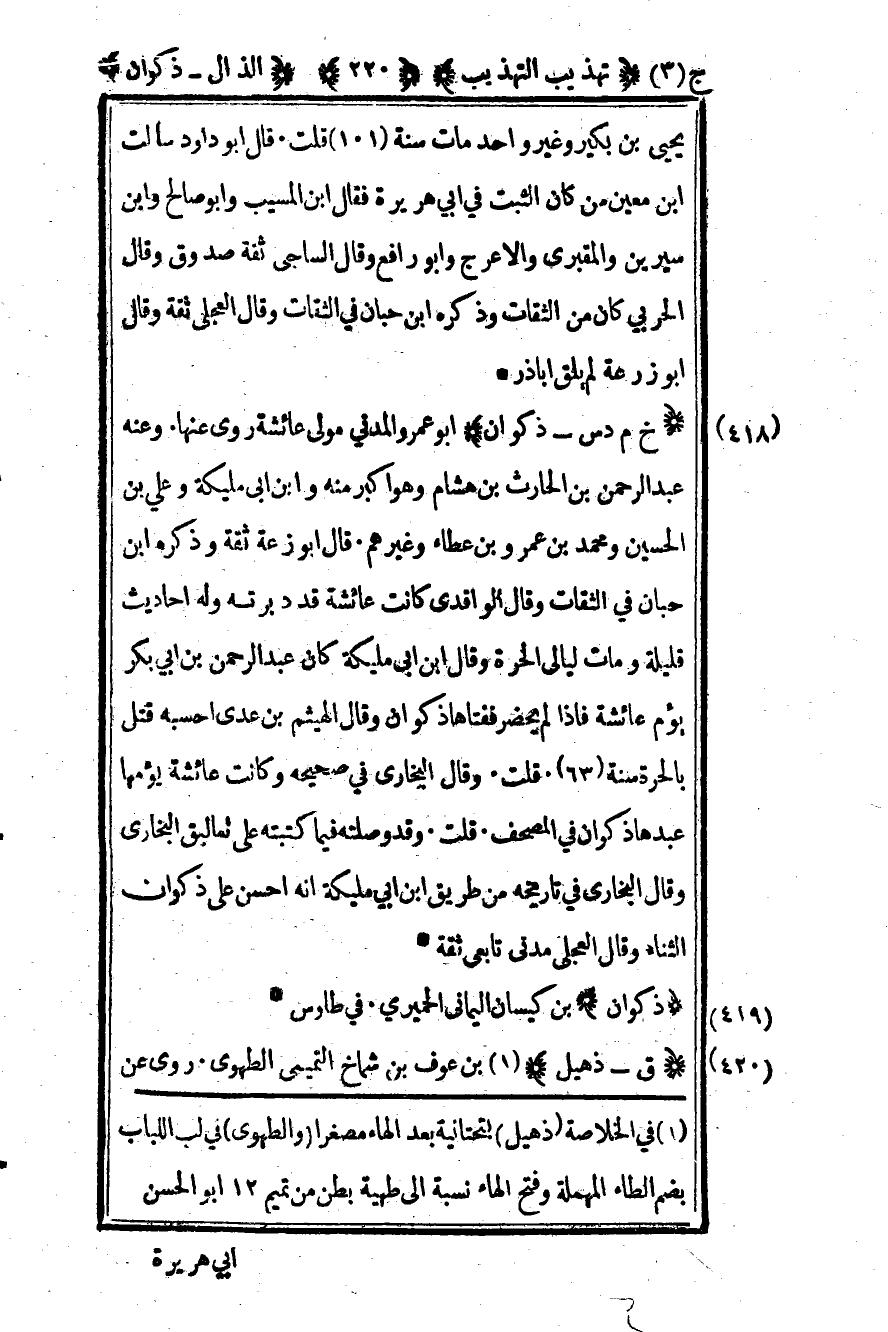 ج (٣) ﴿ تهذيب التهذيب ﴾ ﴿ ٢٢٠ ﴾ ﴿ الذال ـ ذكوان ﴾
يحيى بن بكير وغير واحد مات سنة (١٠١) قلت٠ قال ابو داود سألت
ابن معين من كان الثبت في ابي هريرة فقال ابن المسيب وابو صالح وابن
سيرين والمقبرى والاعرج وابو رافع وقال الساجى ثقة صدوق وقال
الحربي كان من الثقات وذكره ابن حبان في الثقات وقال العجلى ثقة وقال
ابو زرعة لم يلق اباذر *
(٤١٨) ﴿ خ م د س ـ ذكوان ﴾ ابو عمرو المدني مولى عائشة روى عنها٠ وعنه
عبدالرحمن بن الحارث بن هشام وهو اكبر منه وابن ابى مليكة وعلي بن
الحسين ومحمد بن عمرو بن عطاء وغيرهم٠ قال ابو زعة ثقة وذكره ابن
حبان في الثقات وقال الواقدى كانت عائشة قد دبرته وله احاديث
قليلة ومات ليالى الحرة وقال ابن ابى مليكة كان عبدالرحمن بن ابي بكر
يؤم عائشة فاذا لم يحضر ففتاها ذكوان وقال الهيثم بن عدى احسبه قتل
بالحرة سنة (٦٣)٠ قلت٠ وقال البخارى في صحيحه وكانت عائشة يؤمها
عبدها ذكوان في المصحف٠ قلت٠ وقد وصلته فيما كتبته على تعاليق البخارى
وقال البخارى في تاريخه من طريق ابن ابي مليكة انه احسن على ذكوان
الثناء وقال العجلى مدنى تابعى ثقة *
(٤١٩) ﴿ ذكوان ﴾ بن كيسان اليمانى الحميري٠ في طاوس *
(٤٢٠) ﴿ ق ـ ذهيل ﴾ (١) بن عوف بن شماخ التميمى الطهوى٠ روى عن
(١) في الخلاصة (ذهيل) بتحتانية بعد الهاء مصغرا (والطهوى) في لب اللباب
بضم الطاء المهملة وفتح الهاء نسبة الى طهية بطن من تميم ١٢ ابو الحسن
ابي هريرة